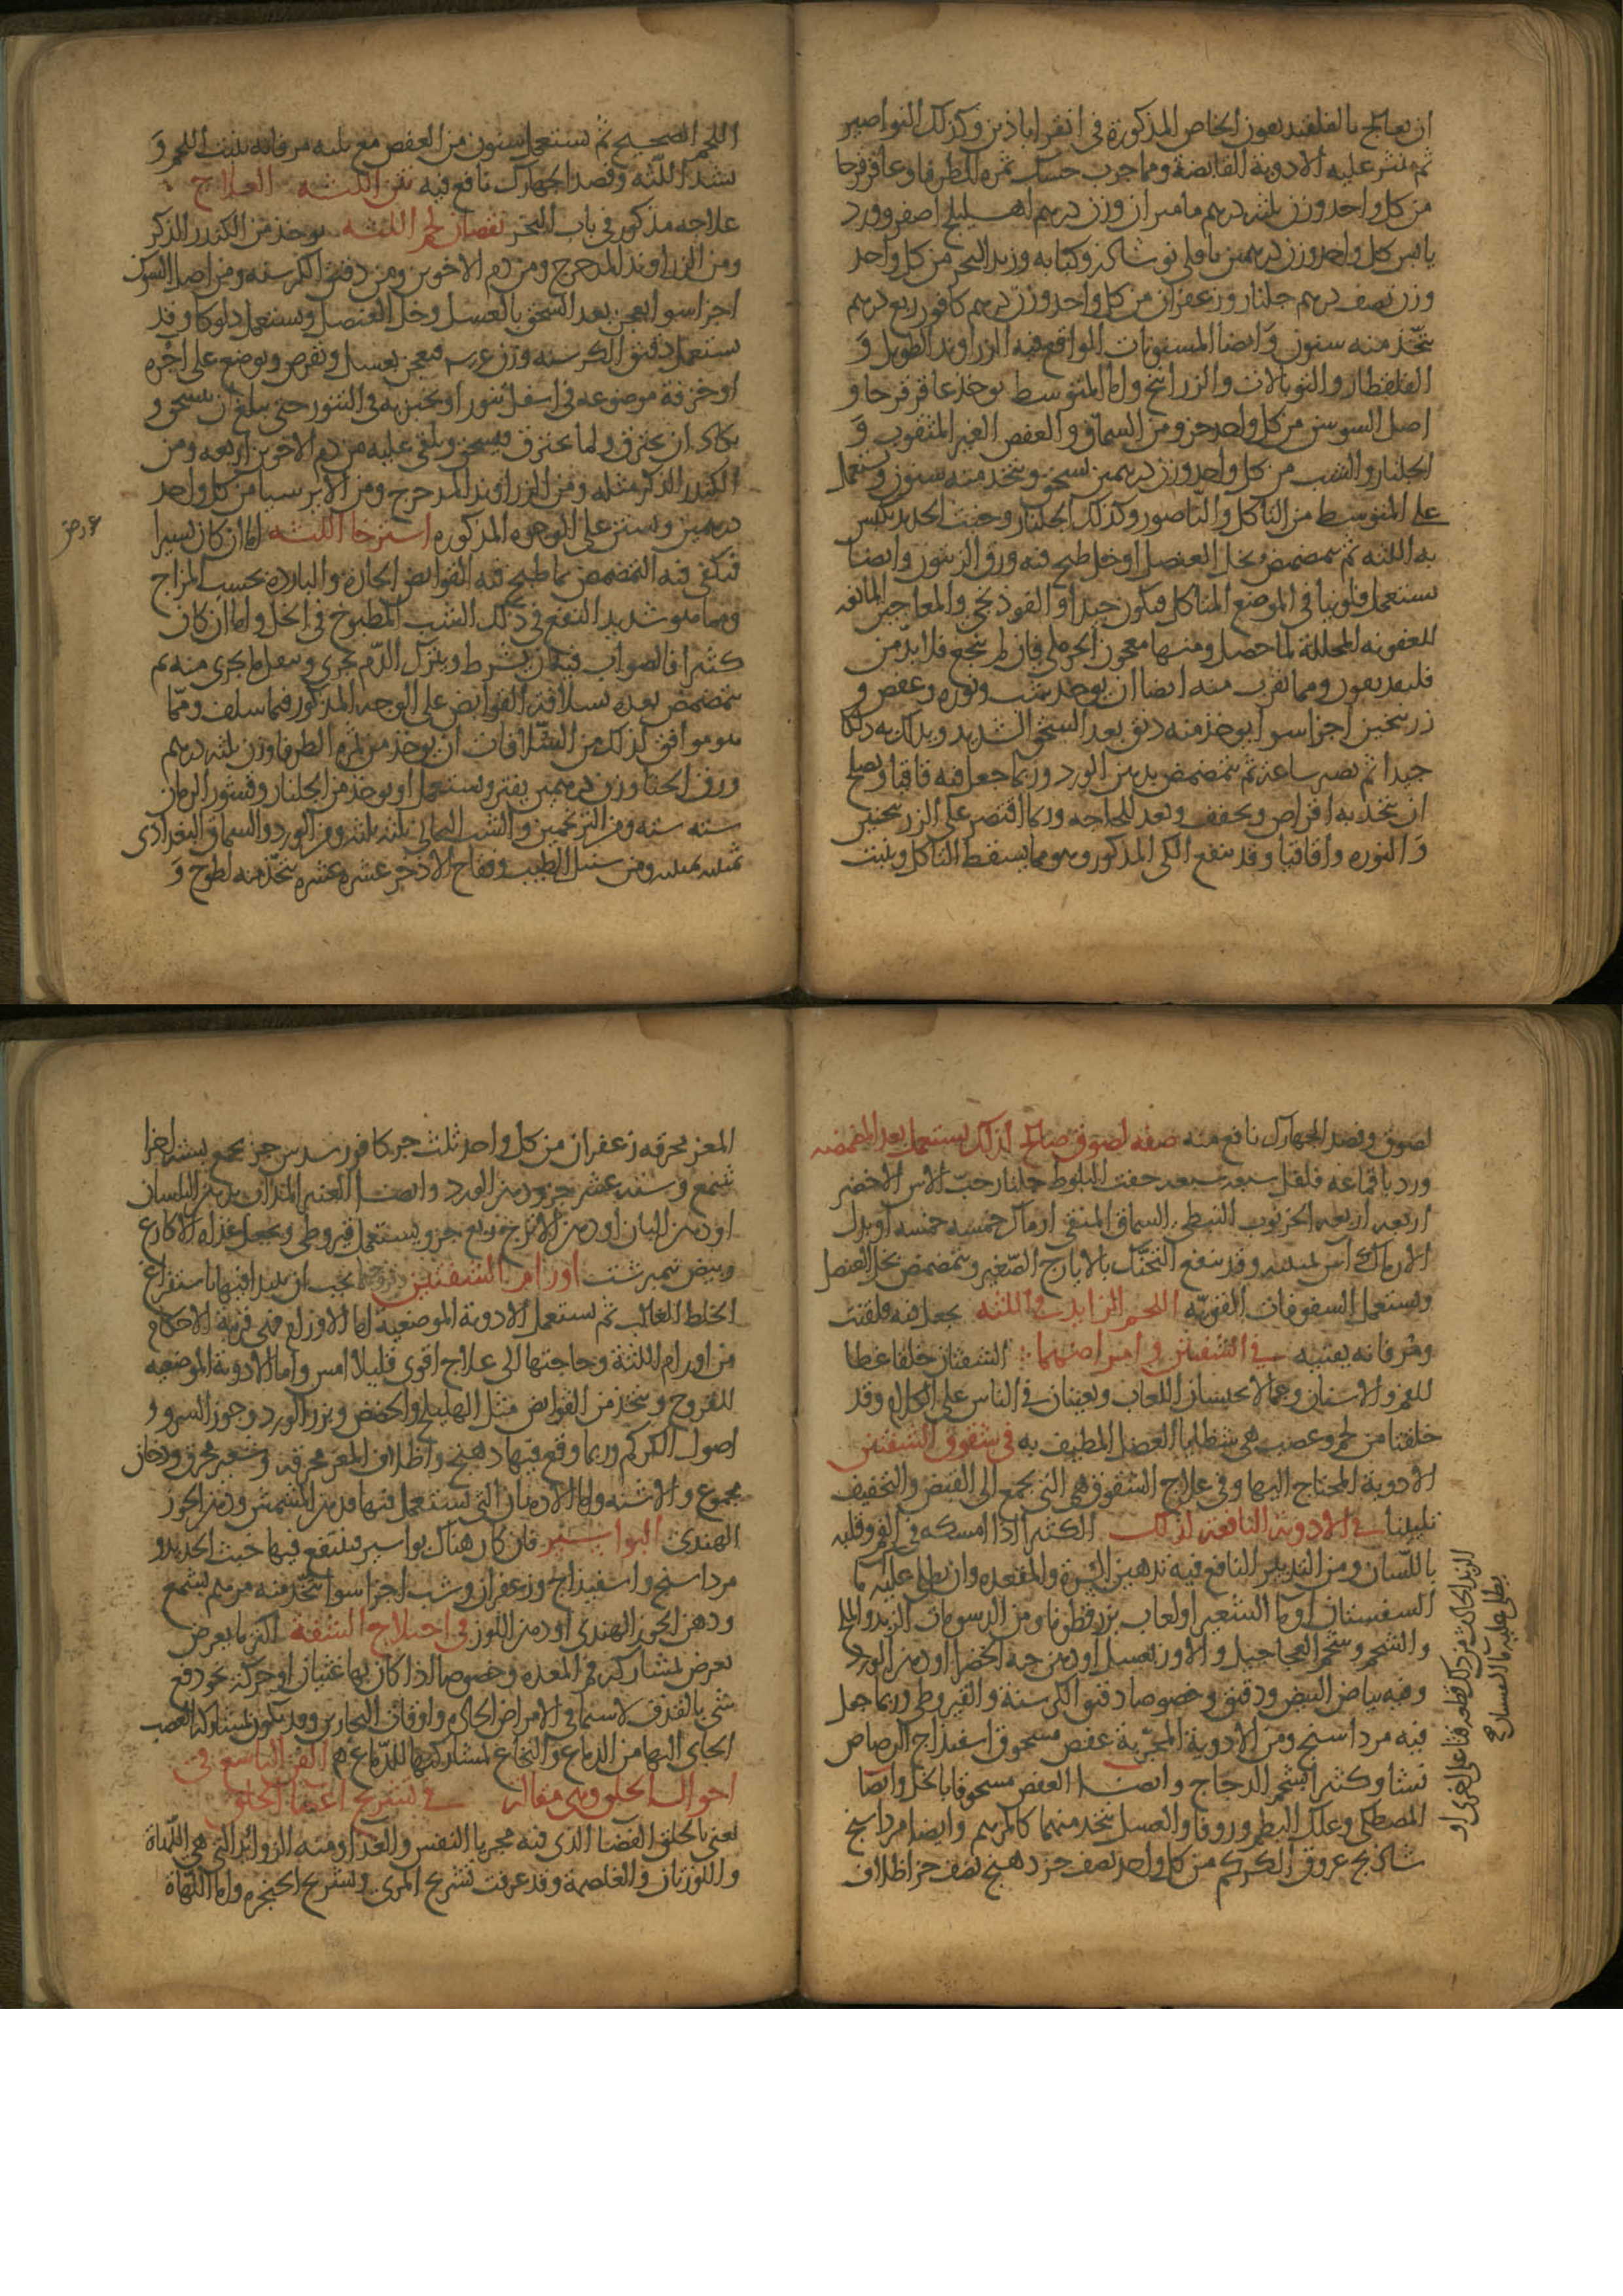 ان يعالج بالقلقنديقون الخاص المذكورة في انقراباذين وكذلك النواصير
ثم نثر عليه الادوية القابضة ومما جرب حسك ثمره الطرفا وعاقرقرحا
من كل واحد وزن ثلثه درهم ماميران وزن درهم اهليلج اصفر وورد
يابس من كل واحد وزن درهمين باقلى نوشاكز وكبابه وزبد البحر من كل واحد
وزن نصف درهم جلنار وزعفران من كل واحد وزن درهم كافور ربع درهم
يتخذ منه سنون وايضا المسنونات الواقع فيه الزراوند الطويل و
القلقطار والتوبالات والزرانيخ واما المتوسط يوخذ عاقرقرحا و
اصل السوسن من كل واحد جزو من السماق والعفص الغير المثقوب و
الجلنار والشب من كل واحد وزن درهمين يسحق ويتخذ منه سنون ويستعمل
على المتوسط من التاكل والناصور وكذلك الجلنار وخبث الحديد يكبس
به اللثه ثم يتمضمض بخل العنصل او خل طبخ فيه ورق الزيتون وايضا
يستعمل فلونيا في الموضع المتاكل فيكون جيدا او الفوذنجي والمعاجين المانعه
للعفونه المحلله لما حصل ومنها معجون الحرملي فان لم ينجع فلا بد من
قلنديقون ومما يقرب منه ايضا ان يوخذ شب ونوره وعفص و
زرنيخين اجزا سوا يوخذ منه دنق بعد السحق الشديد ويدلك به دلكا
جيدا ثم يصبر ساعة ثم يتمضمض بدهن الورد وربما جعل فيه قاقيا ويصلح
ان يتخذ به اقراص ويجفف ويعد للحاجه وربما اقتصر على الزرنيخين
والنوره واقاقيا وقد ينفع الكي المذكور وهو مما يسقط التاكل وينبت
اللحم الصحيح ثم يستعمل سنون من العفص مع ثلثه مر فانه ينبت اللحم و
يشد اللثه وفصد الجهارك نافع فيه نتن اللثه العلاج
علاجه مذكور في باب البخر نقصان لحم اللثه يوخذ من الكندر الذكر
ومن الزراوند المدحرج ومن دم الاخوين ومن دقيق الكرسنه ومن اصل السوسن
اجزا سوا يعجن بعد السحق بالعسل وخل العنصل ويستعمل دلوكا وقد
يستعمل دقيق الكرسنه وزن عشره فيعجن بعسل ويقرص ويوضع على اجره
او خزفة موضوعه في اسفل تنور او يخبز به في التنور حتى يبلغ ان ينسحق و
يكاد ان يحترق ولما يحترق فيسحق ويلقى عليه من دم الاخوين اربعه ومن
الكندر الذكر مثله ومن الزراوند المدحرج ومن الايرسا من كل واحد
درهمين ويستن على الوجوه المذكوره استرخا اللثه اما ان كان يسيرا
فيكفي فيه التمضمض بما طبخ فيه القوابض الحاره والبارده بحسب المزاج
ومما هو شديد النفع في ذلك الشب المطبوخ في الخل واما ان كان
كثيرا فالصواب فيه ان يشرط ويترك الدم يجري ويتفل ما يجري منه ثم
يتمضمض بعده بسلاقة القوابض على الوجه المذكور فيما سلف ومما
هو موافق لذلك من السلاقات ان يوخذ من ثمره الطرفا وزن ثلثه درهم
ورق الحنا وزن درهمين يفتر ويستعمل او يوخذ من الجلنار وقشور الرمان
سته سته ومن الزرنيخين والشب اليماني ثلثه ثلثه ومن الورد والسماق البغدادي
ثمنيه ثمنيه ومن سنبل الطيب وفقاح الاذخر عشره عشره يتخذ منه لطوخ و
لصوق وفصد الجهارك نافع منه صفه لصوق صالح لذلك يستعمل بعد المضمضه
ورد باقماعه فلفل سبعه سبعه جفت البلوط جلنار حب الاس الاخضر
اربعه اربعه الخرنوب النبطي السماق المنقى ارماك خمسه خمسه او بدل
الارماك اس ثمنيه وقد ينفع التحنك بالايارج الصغير ويتمضمض بخل العنصل
ويستعمل السفوفات القويه اللحم الزايد في اللثه يجعل فيه قلقنت
ومر فانه يفنيه في الشفتين وامراضهما الشفتان خلقا غطا
للفم والاسنان ومحلا يحبسان اللعاب ويعينان في الناس على الكلام وقد
خلقتا من لحم وعصب هي شظايا العضل المطيف به في شقوق الشفتين
الادوية المحتاج اليها وفي علاج الشقوق هي التي تجمع الى القبض والتجفيف
تليينا في الادويه النافعه لذلك الكثيرا اذا امسكه في الفم وقلبه
باللسان ومن التدبير النافع فيه تدهين السرة والمقعده وان يطلى عليه ما
السفستان او ما الشعير او لعاب بزرقطونا ومن الدسومات الزبد والمخ
والشحم وشحم العجاجيل والاوز بعسل او دهن حبه الخضرا او دهن الورد
وفيه بياض البيض ودقيق وخصوصا دقيق الكرسنة والقيروطي وربما جعل
فيه مرداسنج ومن الادوية المجربة عفص مسحوق اسفيداج الرصاص
نشا وكثيرا بشحم الدجاج وايضا العفص مسحوقا بالخل وايضا
المصطكى وعلك البطم وزوفا والعسل يتخذ منهما كالمرهم وايضا مرداسنج
شاذنج عروق الكركم من كل واحد نصف جز دهنج نصف جز اظلاف
المعز محرقه زعفران من كل واحد ثلث جز كافور سدس جز يجمع بسته اجزا
شمع وسته عشر جزو دهن الورد وايضا العنبر المذاب بدهن البلسان
او دهن البان او دهن الاترج ربع جزو يستعمل قيروطي ويجعل غذاه الاكارع
وبيض نيمبرشت اورام الشفتين وقروحهما يجب ان يبدا فيها باستفراغ
الخلط الغالب ثم يستعمل الادوية الموضعية اما الاورام فهي قريبة الاحكام
من اورام اللثة وحاجتها الى علاج اقوى قليلا امس واما الادوية الموضعيه
للقروح ويتخذ من القوابض مثل الهليلج والحضض وبزر الورد وجوز السرو و
اصول الكركم وربما وقع فيها دهنج واظلاف المعز محرقه وشعير محرق ودخان
مجموع والاشنه واما الادهان التي يستعمل فيها فدهن المشمش ودهن الجوز
الهندي البواسير فان كان هناك بواسير فينتفع فيها خبث الحديد و
مرداسنج واسفيداج وزعفران وشب اجزا سوا يتخذ منه مرهم بشمع
ودهن الجوز الهندي او دهن اللوز في اختلاج الشفة اكثر ما يعرض
يعرض لمشاركة فم المعده وخصوصا اذا كان بها غثيان او حركة نحو دفع
شي بالقذف لا سيما في الامراض الحاده واوقات البحارين وقد يكون بمشاركة العصب
الجاي اليها من الدماغ والنخاع لمشاركتها للدماغ الفن التاسع في
احوال الحلق وهي مقاله في تشريح اعضا الحلق
نعني بالحلق الفضا الذي فيه مجريا النفس والغدا ومنه الزوائد التي هي اللهاة
واللوزتان والغلصمة وقد عرفت تشريح المري وتشريح الحنجره واما اللهاة